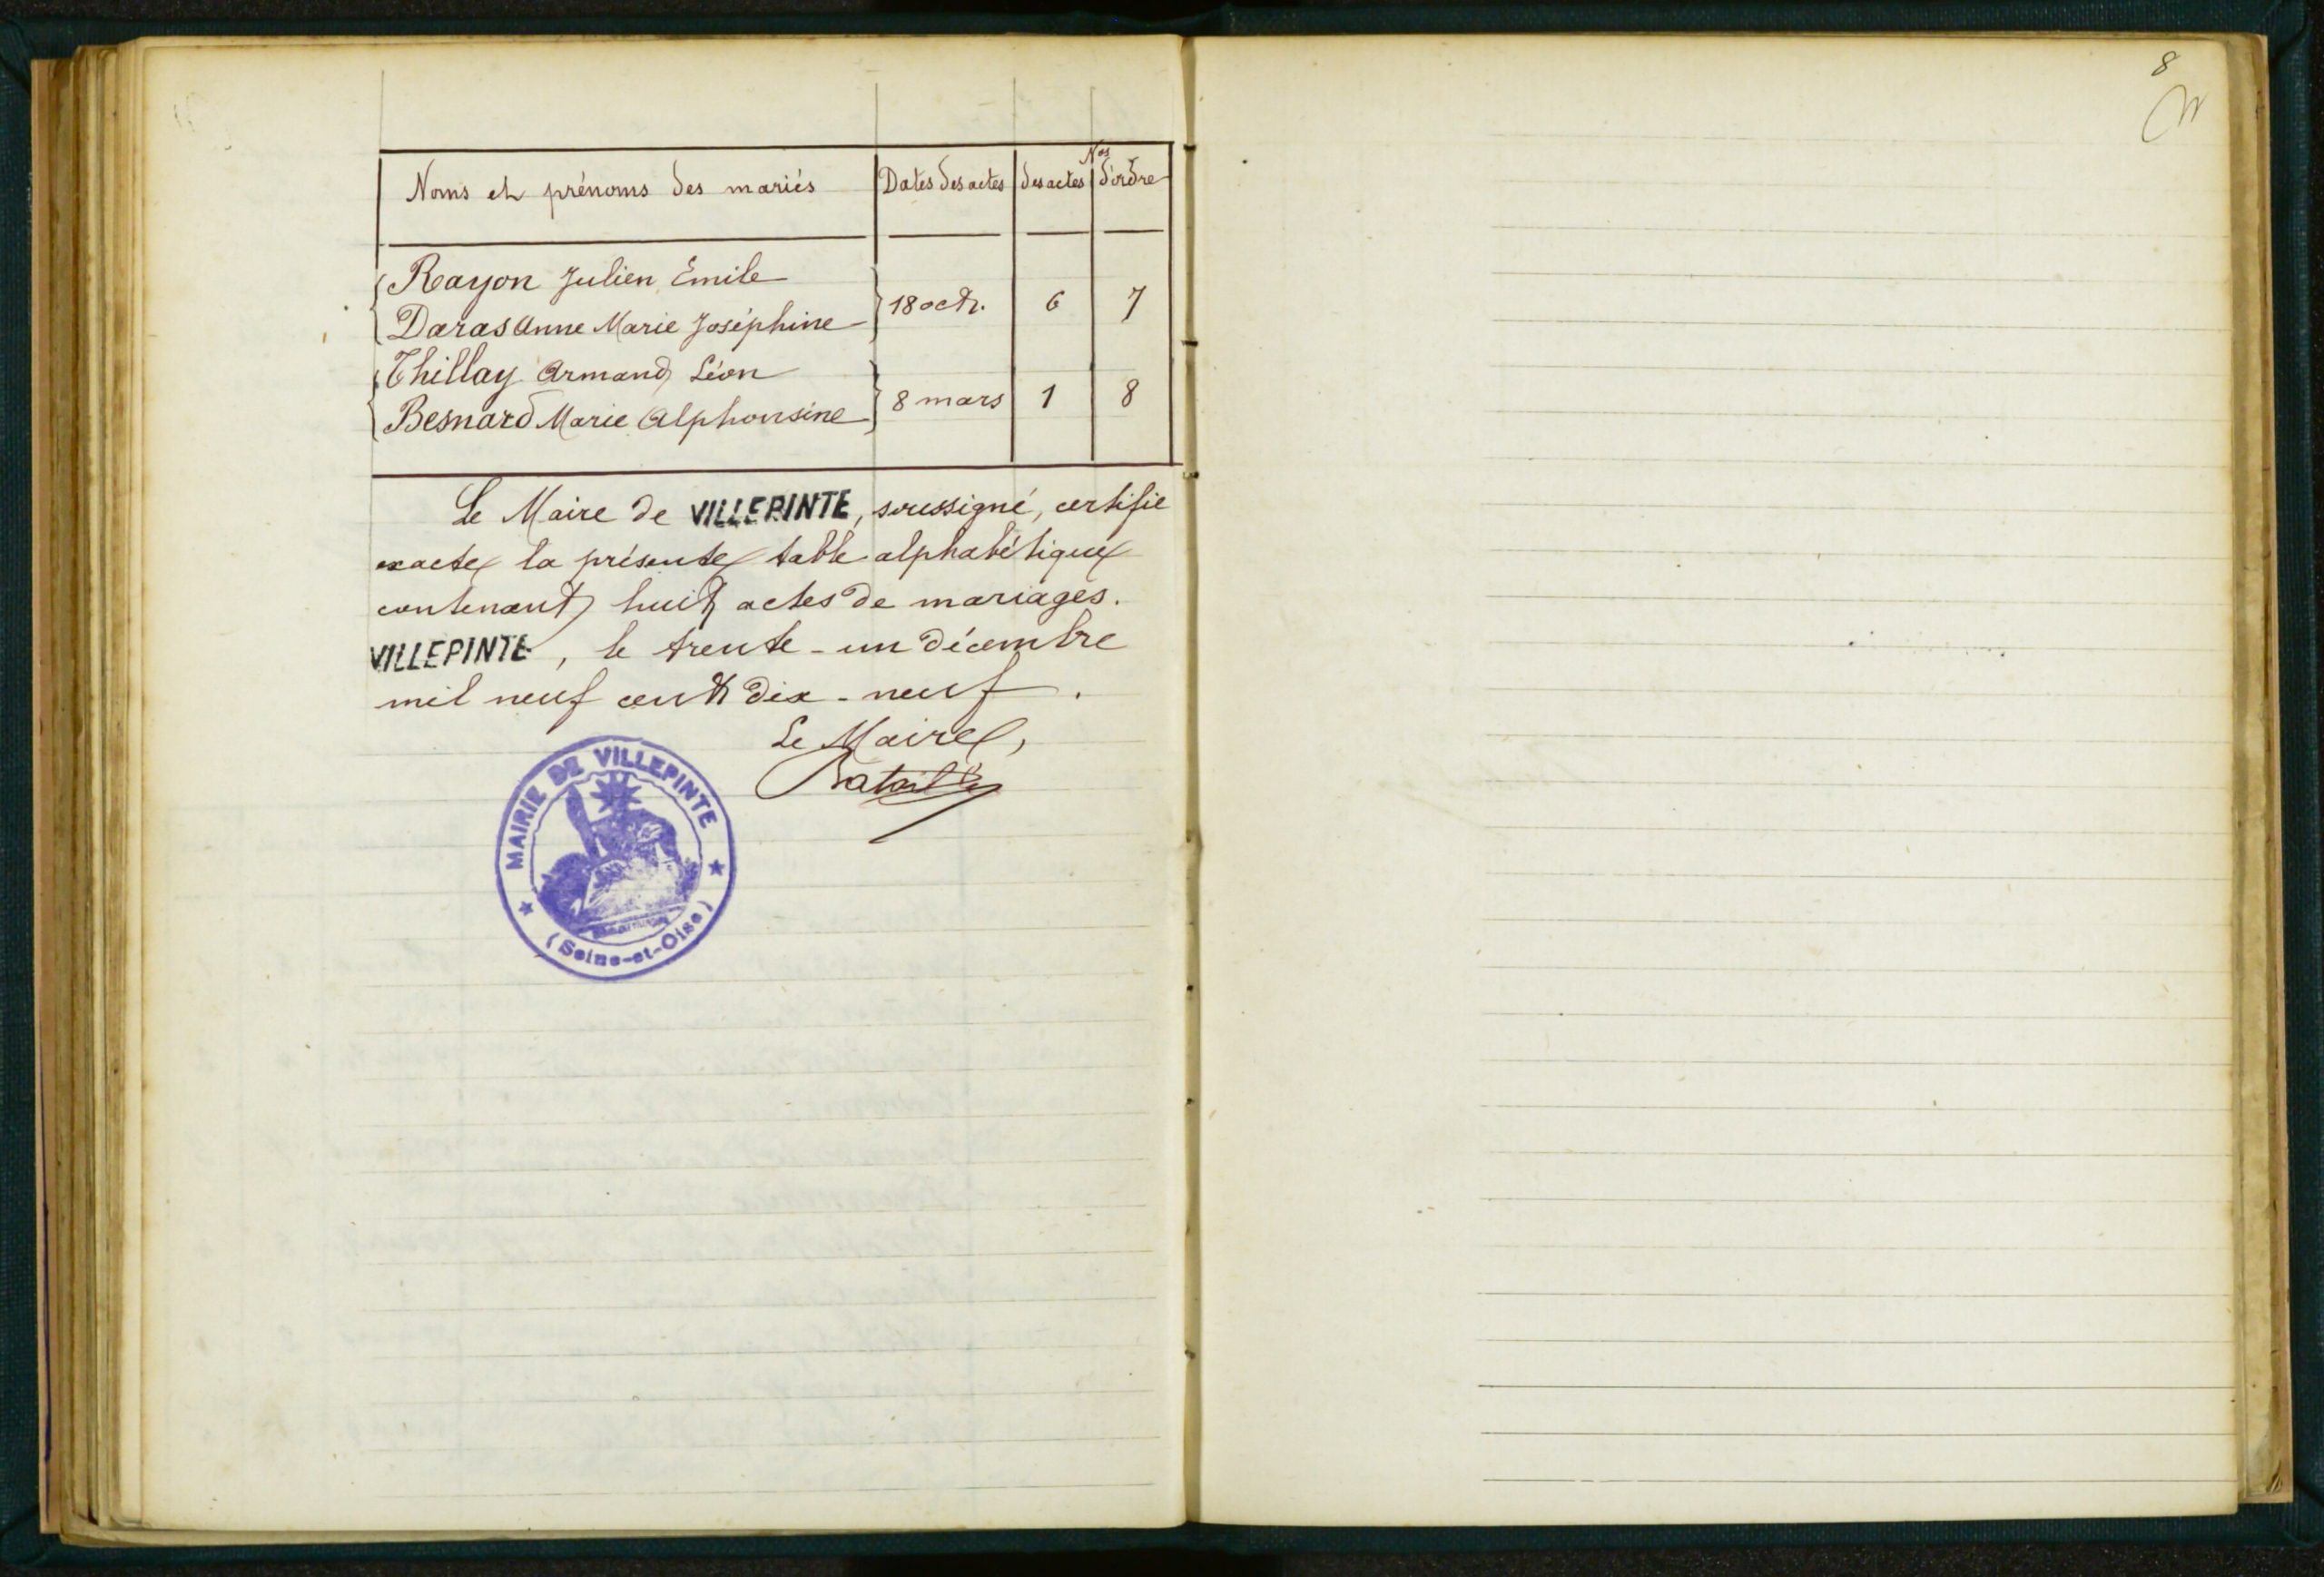 8
Nos
Noms et prénoms des mariés Dates des actes des actes d'ordre
Rayon Julien Émile
Daras Anne Marie Joséphine 18 oct. 6 7
Thillay Armand Léon
Besnard Marie Alphonsine 8 mars 1 8
Le Maire de VILLEPINTE, soussigné, certifie
exacte la présente table alphabétique
contenant huit actes de mariages.
VILLEPINTE, le trente-un décembre
mil neuf cent dix-neuf.
Le Maire,
Bataille
MAIRIE DE VILLEPINTE
(Seine-et-Oise)